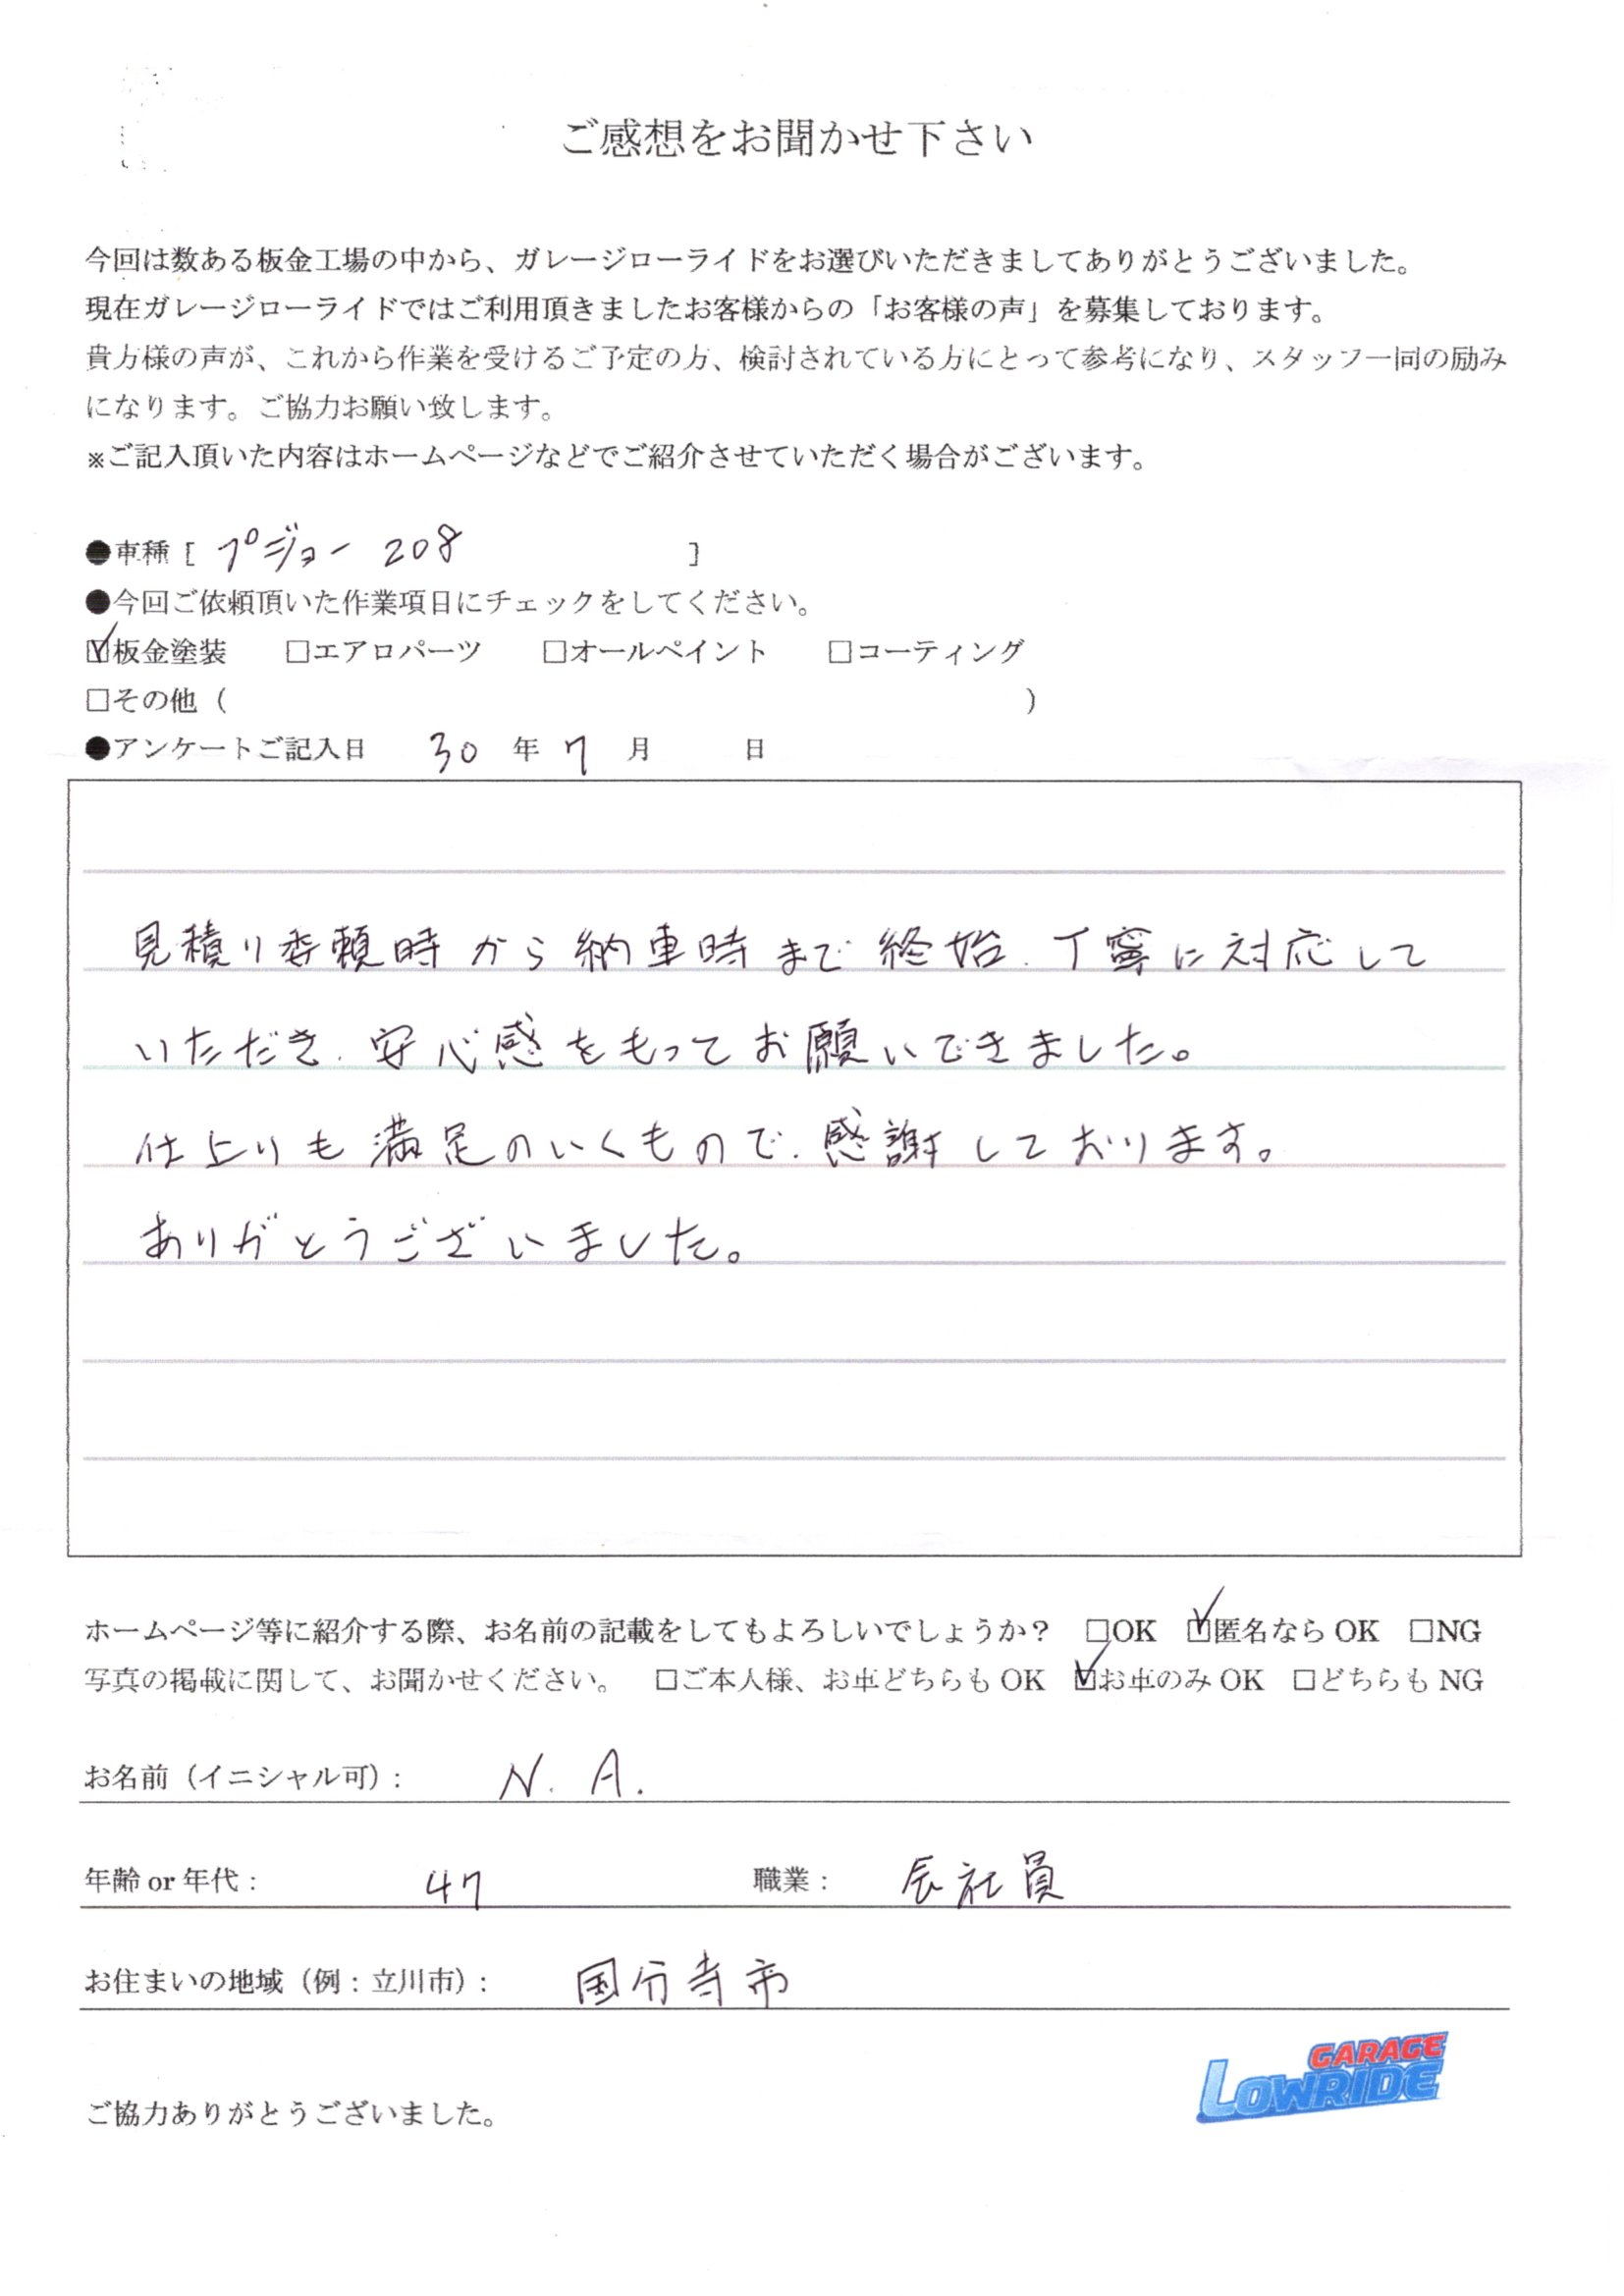 ご感想をお聞かせ下さい
今回は数ある板金工場の中から、ガレージローライドをお選びいただきましてありがとうございました。
現在ガレージローライドではご利用頂きましたお客様からの「お客様の声」を募集しております。
貴方様の声が、これから作業を受けるご予定の方、検討されている方にとって参考になり、スタッフ一同の励み
になります。ご協力お願い致します。
※ご記入頂いた内容はホームページなどでご紹介させていただく場合がございます。
●車種 [ プジョー 208 ]
●今回ご依頼頂いた作業項目にチェックをしてください。
☑板金塗装 □エアロパーツ □オールペイント □コーティング
□その他 ( )
●アンケートご記入日 30 年 7 月 日
見積り委頼時から納車時まで終始、丁寧に対応して
いただき、安心感をもってお願いできました。
仕上りも満足のいくもので、感謝しております。
ありがとうございました。
ホームページ等に紹介する際、お名前の記載をしてもよろしいでしょうか? □OK ☑匿名なら OK □NG
写真の掲載に関して、お聞かせください。 □ご本人様、お車どちらも OK ☑お車のみ OK □どちらも NG
お名前(イニシャル可): N. A.
年齢 or 年代: 47 職業: 会社員
お住まいの地域(例:立川市): 国分寺市
GARAGE
LOWRIDE
ご協力ありがとうございました。